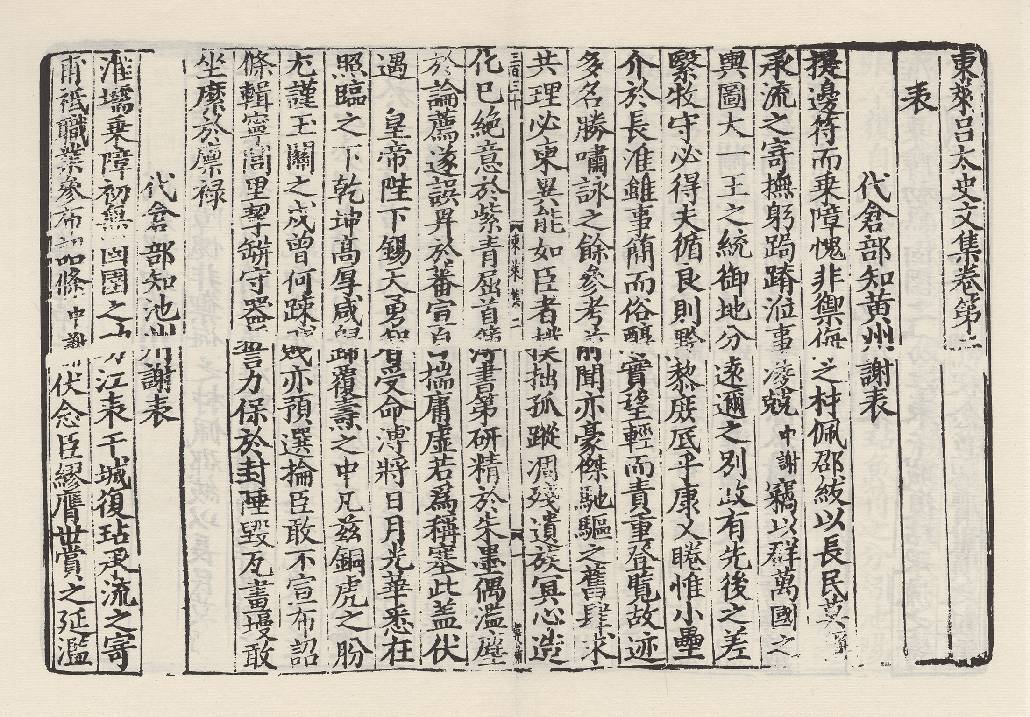 東萊呂太史文集卷第二
表
代倉部知黃州謝表
擁邊符而乗障愧非禦侮之材佩郡紱以長民莫
承流之寄撫躬跼蹐涖事凌兢中謝竊以群萬國之
輿圖大一王之統御地分遠邇之别政有先後之差
繄牧守必得夫循良則黔黎庶底乎康乂睠惟小壘
介於長淮雖事簡而俗醇實望輕而責重登覧故迹
多名勝嘯詠之餘參考前聞亦豪傑馳驅之舊肆求
共理必柬異能如臣者樸拙孤蹤凋殘遺族冥心造
化已絶意於紫青屈首簿書第研精於朱墨偶濫塵
於論薦遂誤畀於蕃宣自揣庸虚若爲稱塞此盖伏
遇 皇帝陛下錫天勇智受命溥將日月光華悉在
照臨之下乾坤髙厚咸歸覆燾之中凡兹銅虎之肦
尤謹玉關之戍曾何踈賤亦預選掄臣敢不宣布詔
條輯寧閭里挈缾守器誓力保於封陲毀瓦畫墁敢
坐縻於廪禄
代倉部知池州謝表
淮壖乗障初無固圉之功江表干城復玷承流之寄
甫祗職業參布詔條中謝伏念臣繆膺世賞之延濫
東萊集二